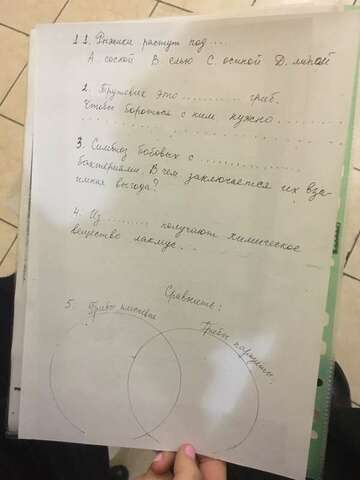 1 1. Рыжики растут под....
А. сосной В. елью С. осиной Д. липой
2. Трутовик это .......... гриб.
Чтобы бороться с ним нужно..........
3. Симбиоз бобовых с ..........
бактериями В чем заключается их вза-
имная выгода?
4. Из ......... получают химическое
вещество лакмус.
Сравнить:
5. Грибы
Грибы паразиты.